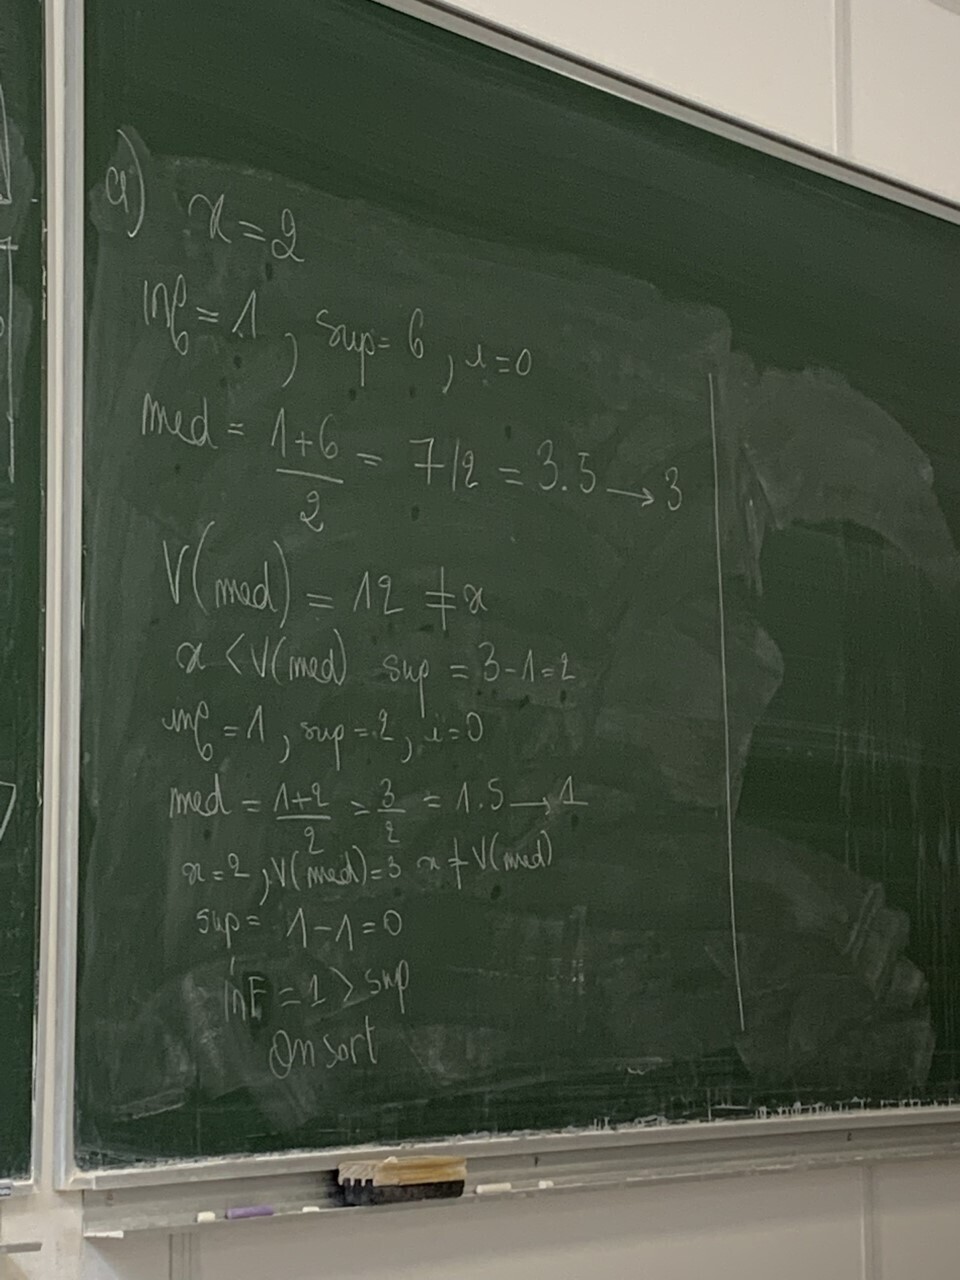 a) x = 2
inf = 1 , sup = 6 , i = 0
med = (1+6)/2 = 7/2 = 3.5 → 3
V(med) = 12 ≠ x
x < V(med) sup = 3-1=2
inf = 1 , sup = 2 , i = 0
med = (1+2)/2 = 3/2 = 1.5 → 1
x = 2 , V(med) = 3 x ≠ V(med)
sup = 1-1=0
inF = 1 > sup
On sort